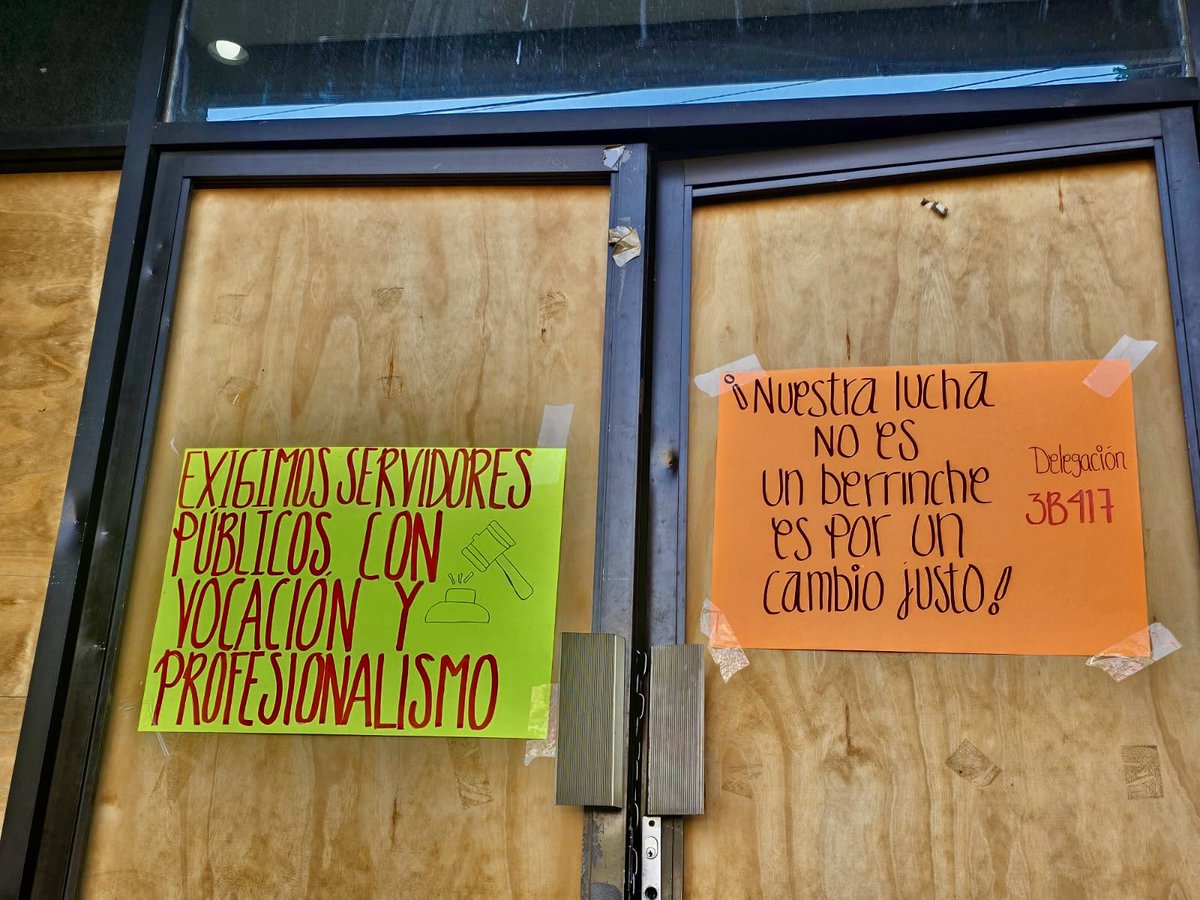 EXIGIMOS SERVIDORES
PÚBLICOS CON
VOCACIÓN Y
PROFESIONALISMO
¡Nuestra lucha
no es
un berrinche
es por un
cambio justo!
Delegación
3B417